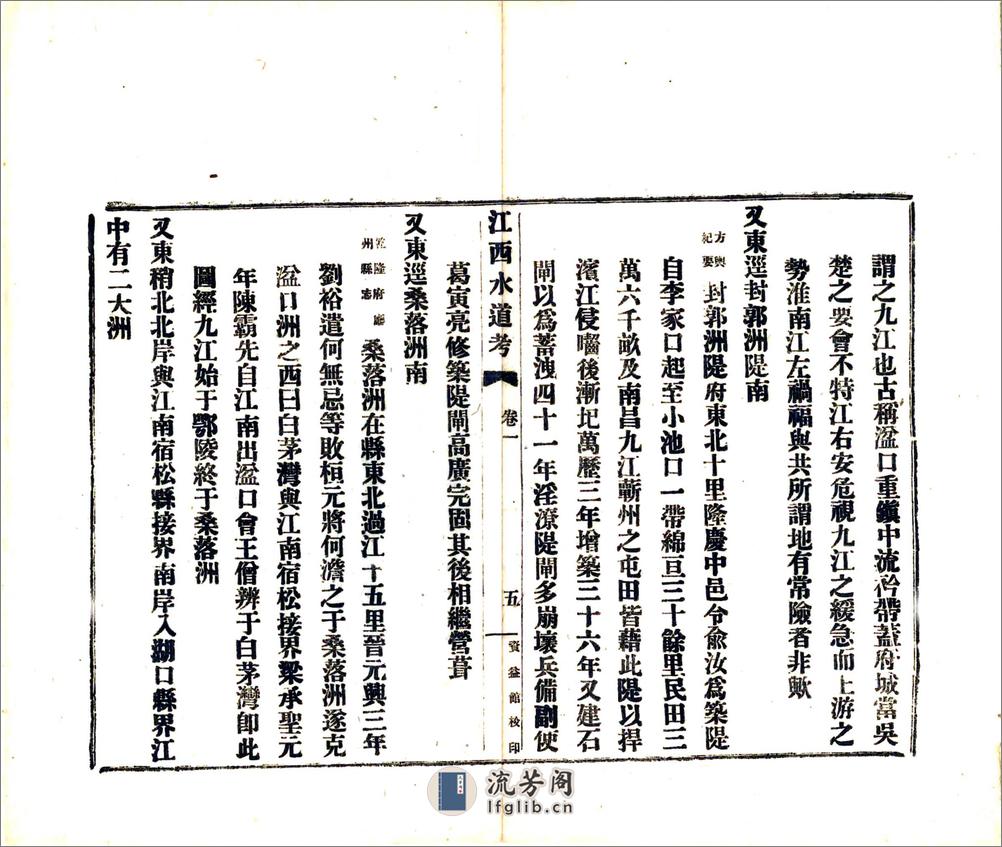 謂之九江也古稱湓口重鎭中流衿帶蓋府城當吳
楚之要會不特江右安危視九江之緩急而上游之
勢淮南江左禍福與共所謂地有常險者非歟
又東逕封郭洲隄南
方輿紀要 封郭洲隄府東北十里隆慶中邑令俞汝爲築隄
自李家口起至小池口一帶綿亘三十餘里民田三
萬六千畝及南昌九江蘄州之屯田皆藉此隄以捍
濱江侵嚙後漸圮萬歷三年增築三十六年又建石
閘以爲蓄洩四十一年淫潦隄閘多崩壞兵備副使
江西水道考 卷一 五 資益館校印
葛寅亮修築隄閘高廣完固其後相繼營葺
又東逕桑落洲南
乾隆府廳州縣志 桑落洲在縣東北過江十五里晉元興三年
劉裕遣何無忌等敗桓元將何澹之于桑落洲遂克
湓口洲之西曰白茅灣與江南宿松接界梁承聖元
年陳霸先自江南出湓口會王僧辨于白茅灣卽此
圖經九江始于鄂陵終于桑落洲
又東稍北北岸與江南宿松縣接界南岸入湖口縣界江
中有二大洲
流芳阁
lfglib.cn